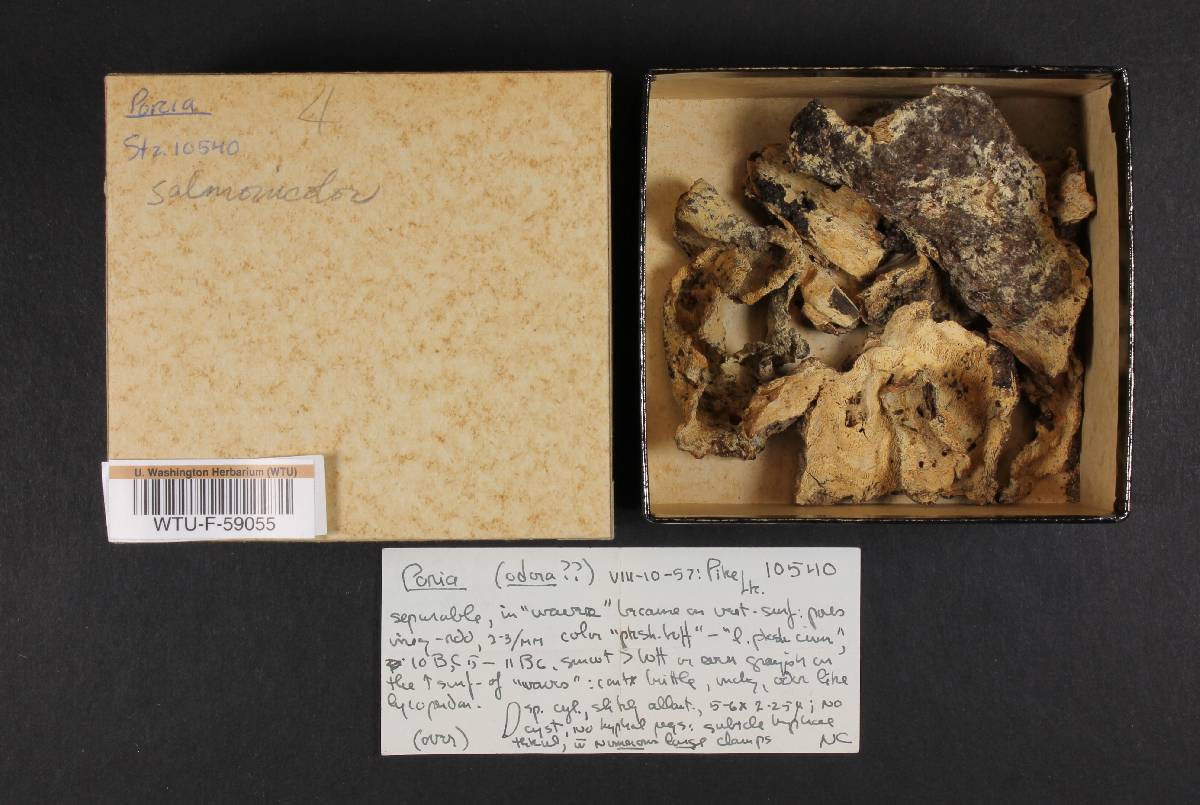 Poria
4
Stz. 10540
salmonicolor
U. Washington Herbarium (WTU)
WTU-F-59055
Poria (odora??) VIII-10-57: Pike Lk. 10540
separable, in "waves" because on vert. surf: pores
2-3/mm color "pksh. buff" – "l. pksh cinn",
10 B5 – 11 B6. buff or even grayish on
the ↑ surf of "waves": brittle, odor like
lycoperdon. sp. cyl., slitely allant., 5-6 x 2-2.5 μ; NO
cyst, no hyphal pegs: subicle hyphae
(over) numerous large clamps NC